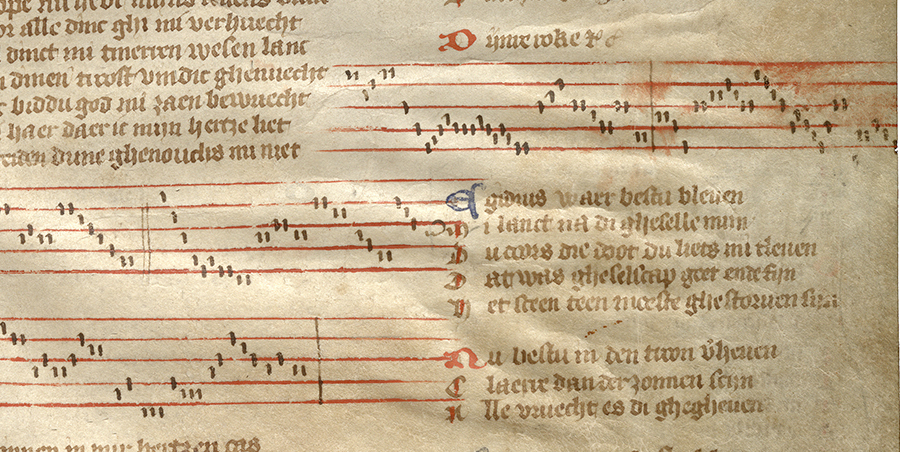 or alle dinc ghi mi verhuecht
dinct mi tmerren wesen lanc
dinen troost vindic ghenuecht
biddu god mi zaen bewuecht
haer daer ic mijn hertze liet
dune ghenouchs mi niet
in mijn hertzen cas
Egidius waer bestu bleuen
Mi lanct na di gheselle mijn
Du coors die doot du liets mi tleuen
Dat was gheselscap goet ende fijn
Het sceen teen moeste ghestoruen sijn
Nu bestu in den troon v̉heuen
Claerre dan der zonnen scijn
Alle vruecht es di ghegheuen